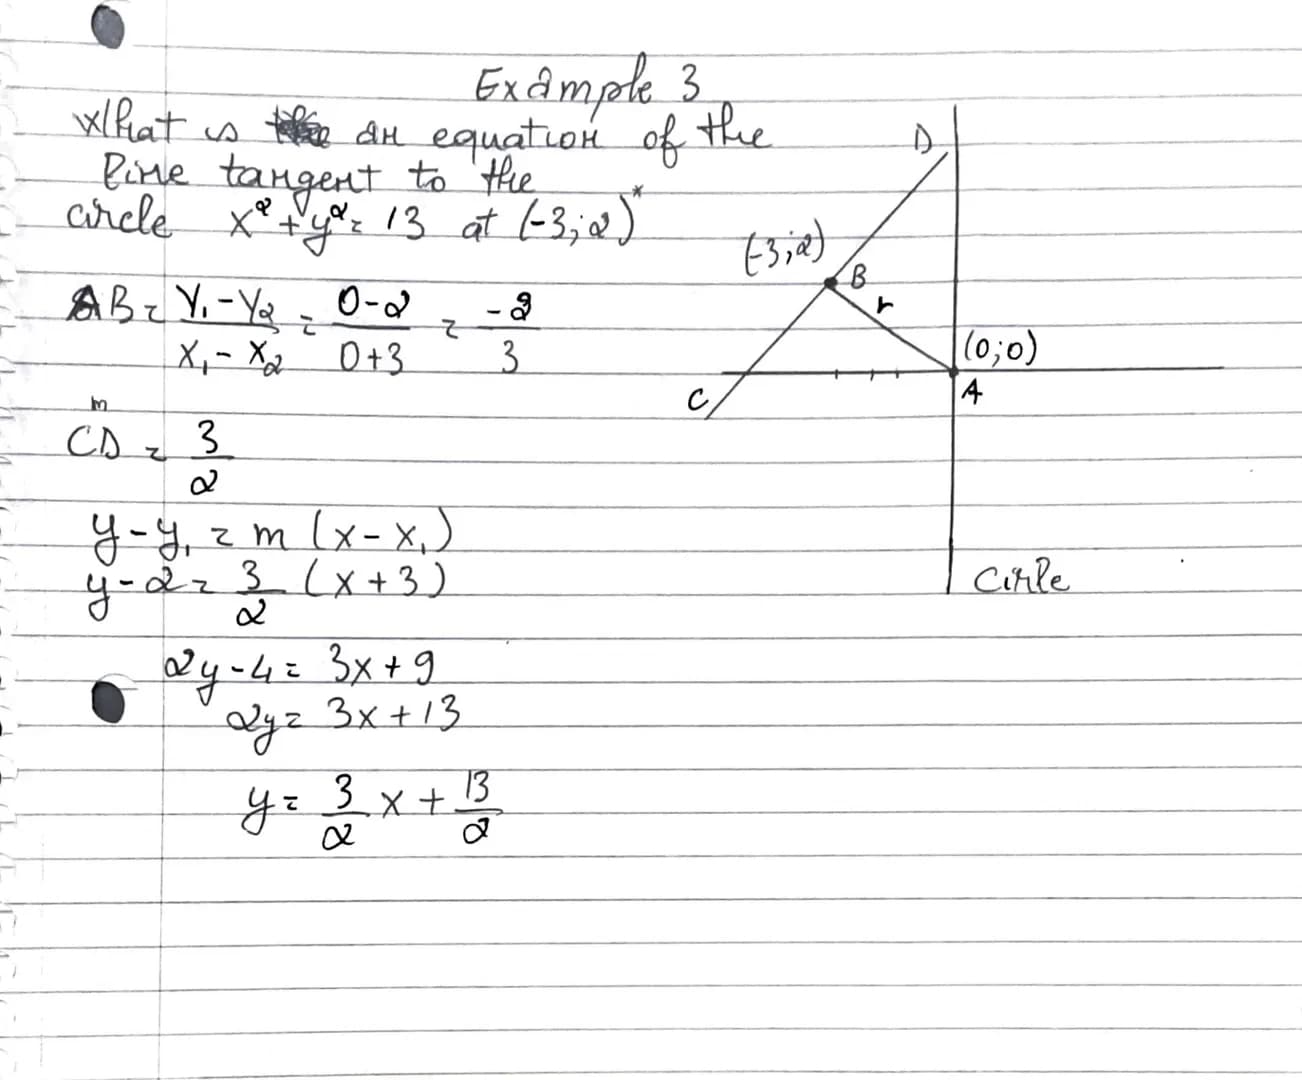 Example 3
What is an equation of the
line tangent to the
circle x² + y² = 13 at (-3;2)*
AB = y₁ - y₂ / x₁ - x₂ = 0-2 / 0+3 = -2 / 3
m
CD = 3/2
y - y₁ = m (x - x₁)
y - 2 = 3/2 (x + 3)
2y - 4 = 3x + 9
2y = 3x + 13
y = 3/2 x + 13/2
D
(-3;2)
B
r
(0;0)
C
A
Cirle